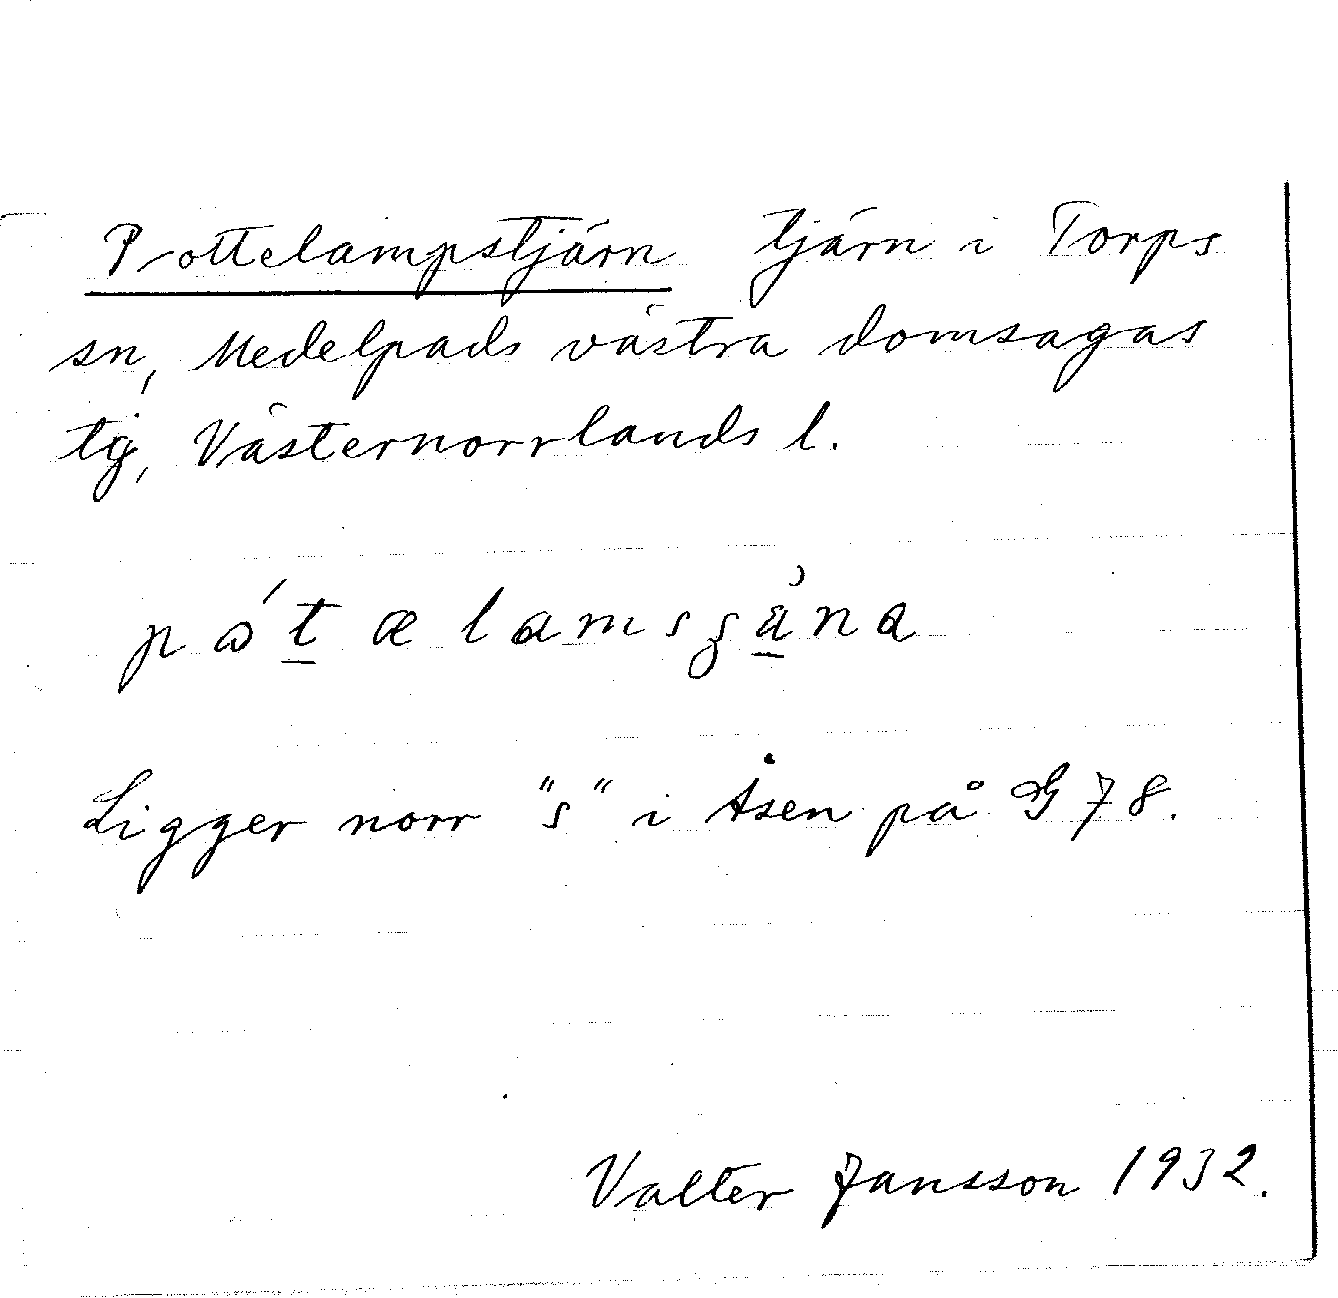 Pottelampstjärn tjärn i Torps
sn, Medelpads västra domsagas
tg, Västernorrlands l.
Ligger norr "s" i Åsen på G 78.
Valter Jansson 1932.